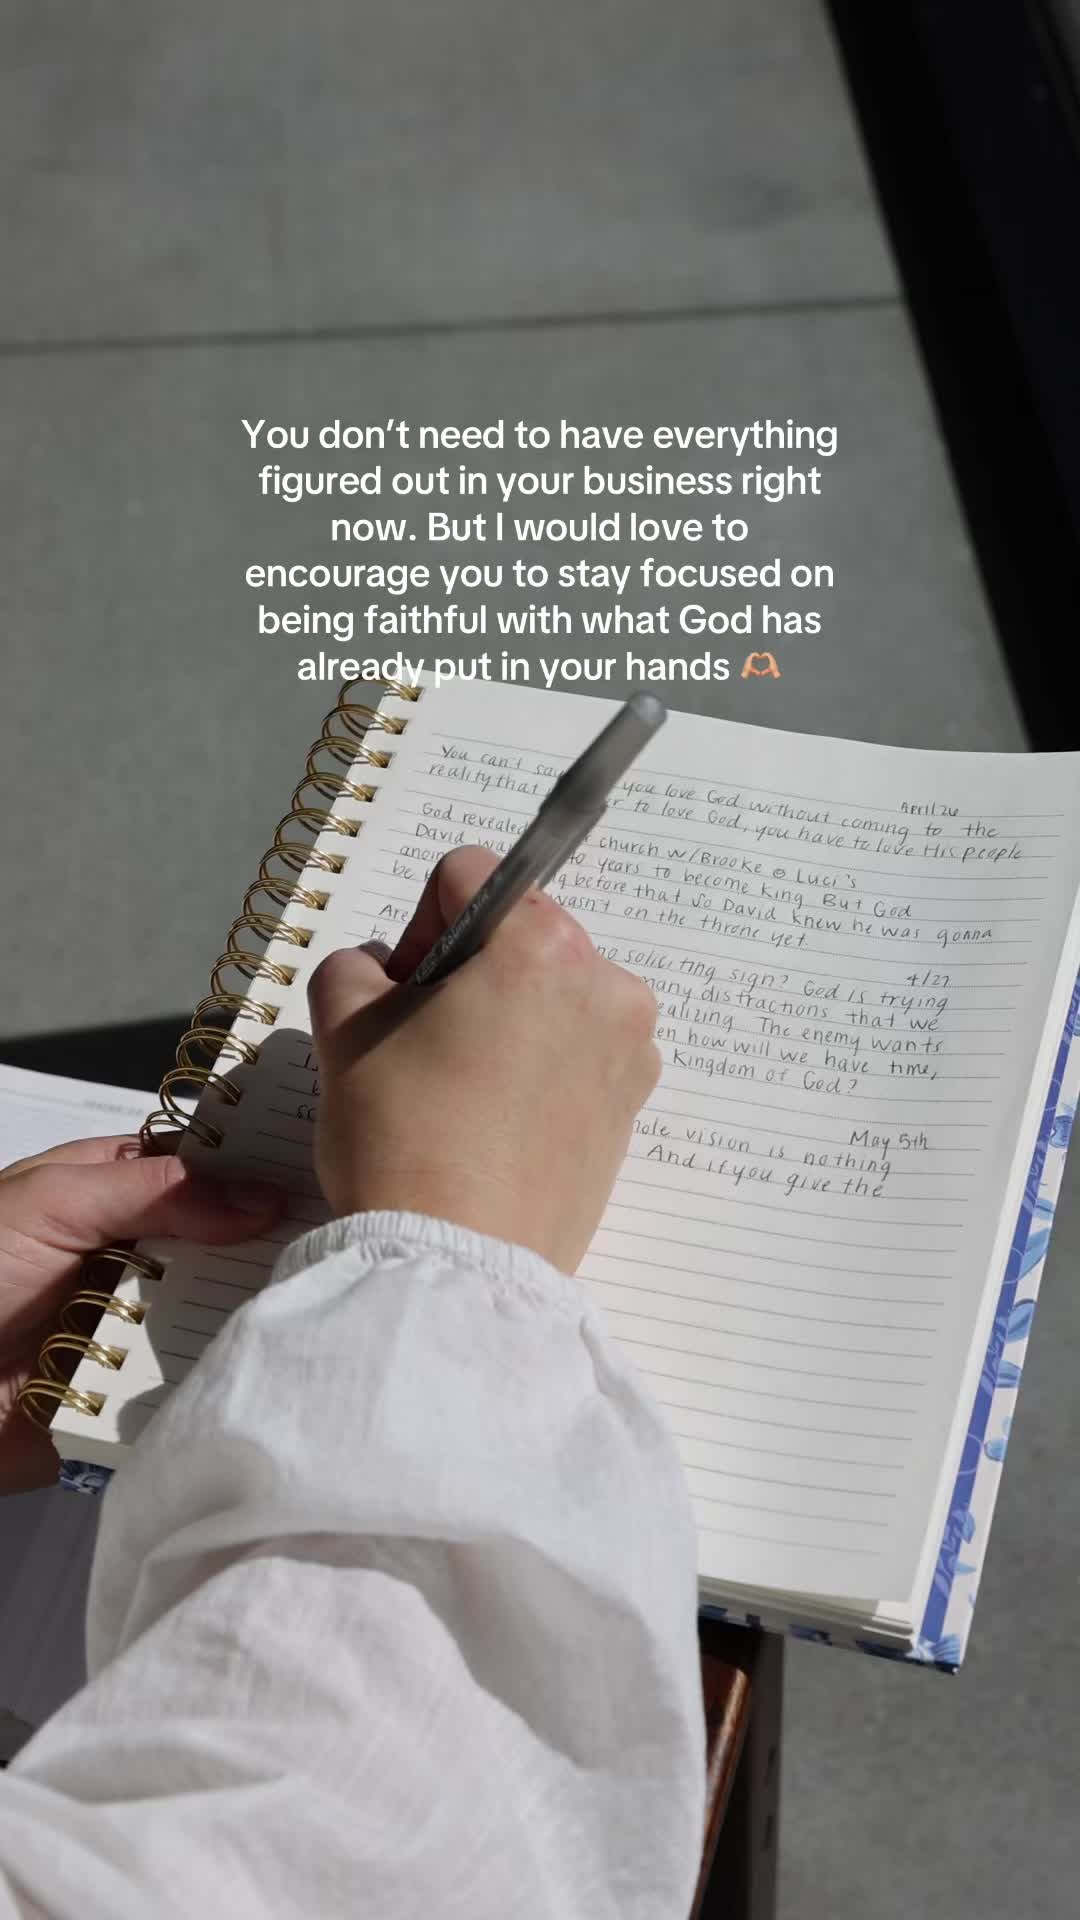 You don’t need to have everything
figured out in your business right
now. But I would love to
encourage you to stay focused on
being faithful with what God has
already put in your hands 🫶🏼
April 26
You can't say you love God without coming to the
reality that to love God, you have to love His people
God revealed church w/Brooke @ Luci's
David years to become King But God
before that so David knew he was gonna
be wasn't on the throne yet.
Are no soliciting sign? God is trying
4/27
to many distractions that we
The enemy wants
how will we have time,
Kingdom of God?
May 5th
vision is nothing
And if you give the